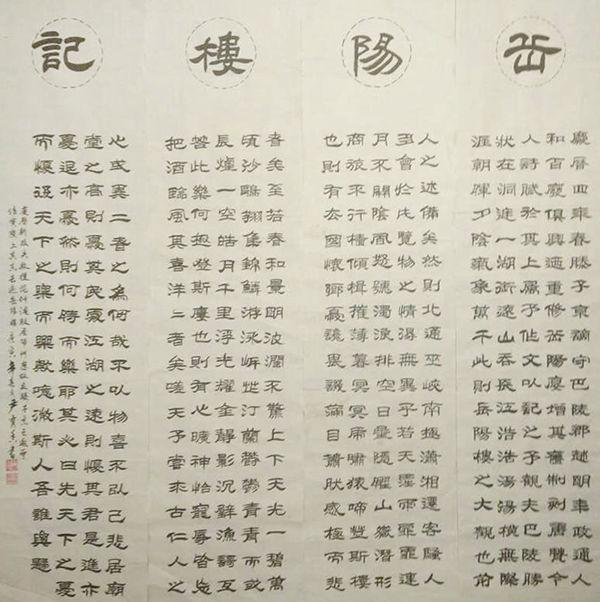 岳陽樓記
慶曆四年春滕子京謫守巴陵郡越明年政通人
和百廢俱興迺重修岳陽樓增其舊制刻唐賢今
人詩賦於其上屬予作文以記之予觀夫巴陵勝
狀在洞庭一湖銜遠山吞長江浩浩湯湯橫無際
涯朝暉夕陰氣象萬千此則岳陽樓之大觀也前
人之述備矣然則北通巫峽南極瀟湘遷客騷人
多會於此覽物之情得無異乎若夫霪雨霏霏連
月不開陰風怒號濁浪排空日星隱曜山嶽潛形
商旅不行檣傾楫摧薄暮冥冥虎嘯猿啼登斯樓
也則有去國懷鄉憂讒畏譏滿目蕭然感極而悲
者矣至若春和景明波瀾不驚上下天光一碧萬
頃沙鷗翔集錦鱗游泳岸芷汀蘭鬱鬱青青而或
長煙一空皓月千里浮光耀金靜影沉璧漁歌互
答此樂何極登斯樓也則有心曠神怡寵辱皆忘
把酒臨風其喜洋洋者矣嗟夫予嘗求古仁人之
心或異二者之為何哉不以物喜不以己悲居廟
堂之高則憂其民處江湖之遠則憂其君是進亦
憂退亦憂然則何時而樂耶其必曰先天下之憂
而憂後天下之樂而樂歟噫微斯人吾誰與歸